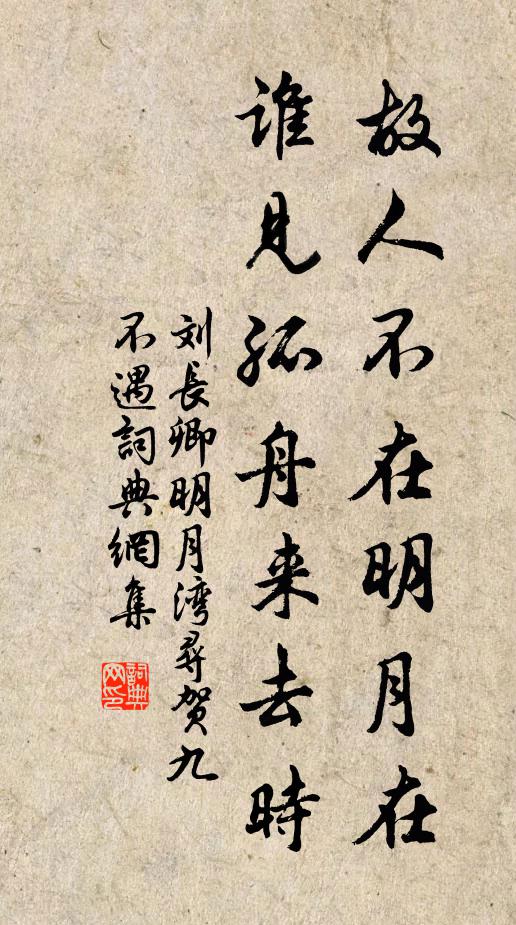 故人不在明月在
谁見孤舟来去時
刘長卿明月湾尋贺九
不遇詞典網集
詞典网印